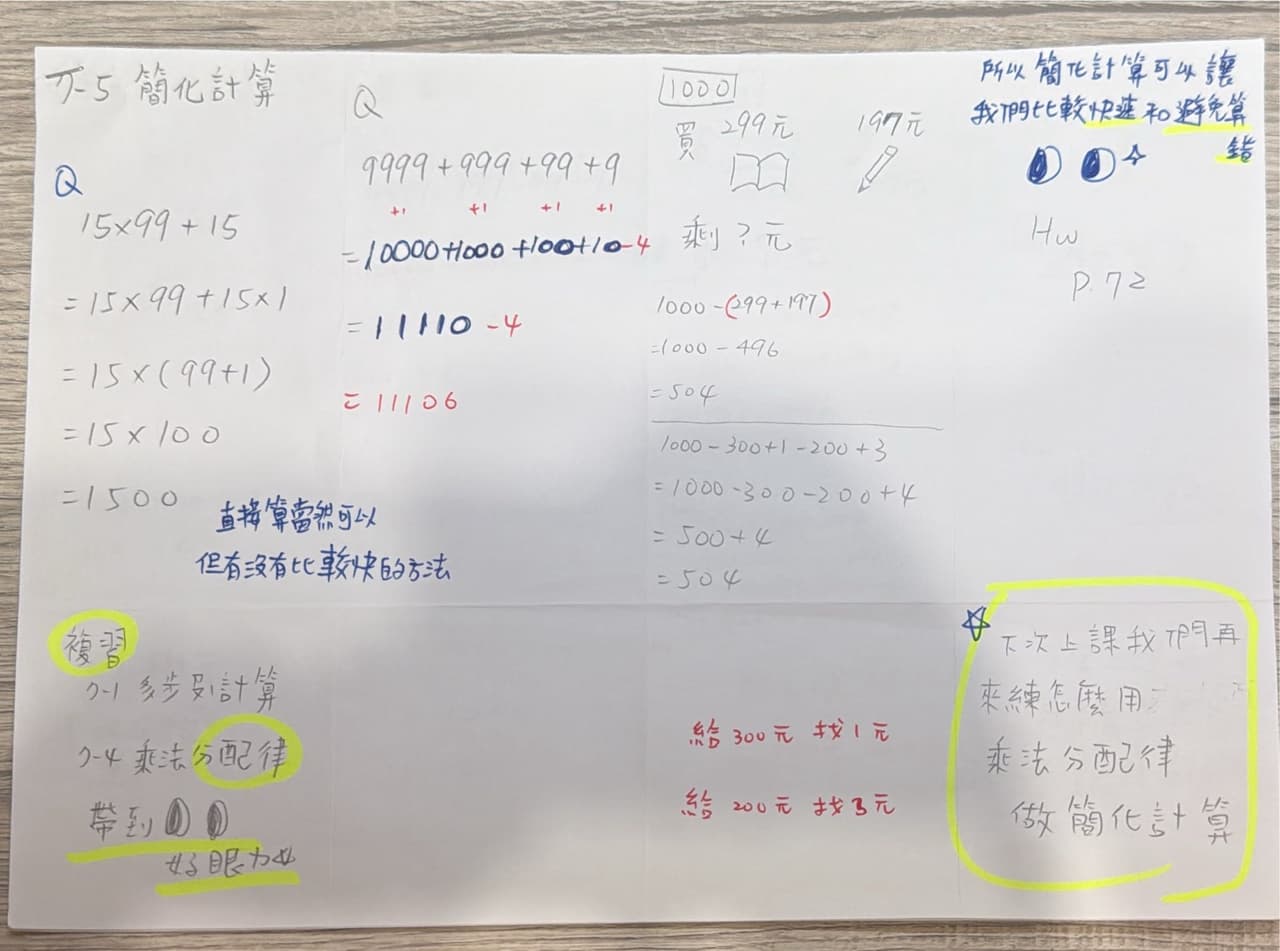 7-5 簡化計算
Q
15×99+15
=15×99+15×1
=15×(99+1)
=15×100
=1500
直接算當然可以
但有沒有比較快的方法
複習
7-1 多步驟計算
7-4 乘法分配律
帶到
好眼力
Q
9999+999+99+9
+1 +1 +1 +1
=10000+1000+100+10-4
=11110-4
=11106
1000
買 299元 197元
剩?元
1000-(299+197)
=1000-496
=504
1000-300+1-200+3
=1000-300-200+4
=500+4
=504
給300元 找1元
給200元 找3元
所以簡化計算可以讓
我們比較快速和避免算
錯
Hw
P.72
下次上課我們再
來練怎麼用
乘法分配律
做簡化計算